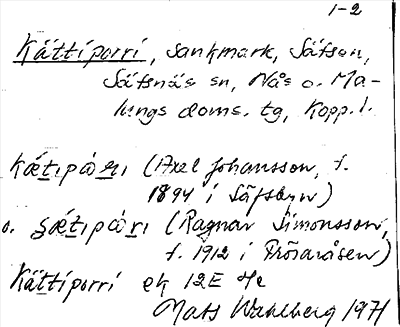 1-2
Kättiporri, sankmark, Säfsen,
Säfsnäs sn, Nås o. Ma-
lungs doms. tg, Kopp. l.
(Axel Johansson, f.
1894 i Säfsbyn)
o. (Ragnar Simonsson,
f. 1912 i Fröseråsen)
Kättiporri ek 12E
Mats Wahlberg 1971